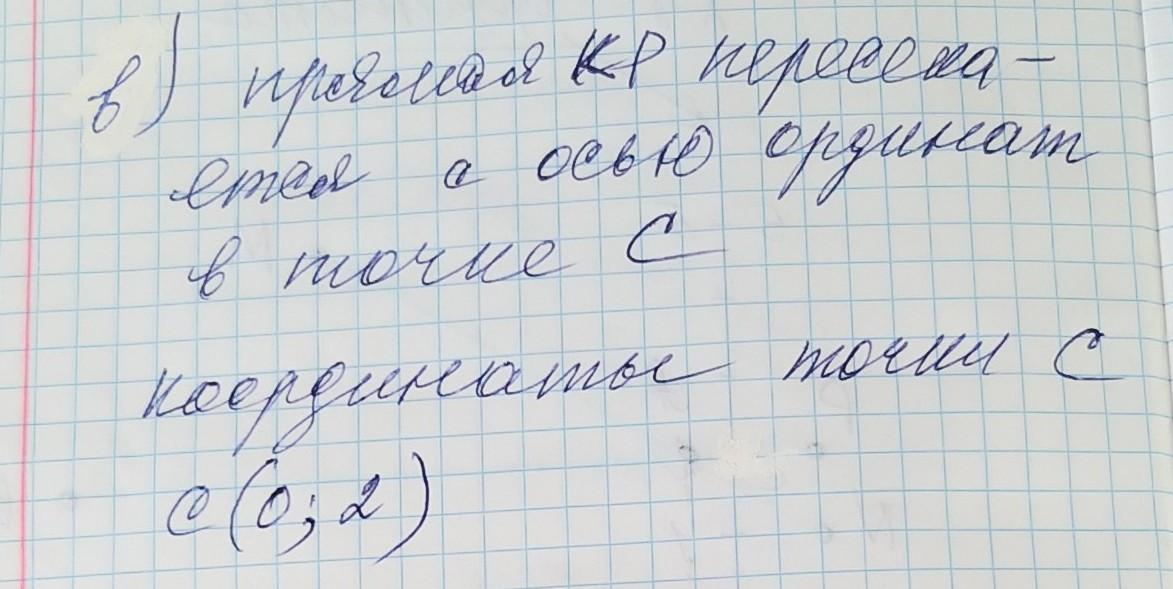 в) прямая КР пересека-
ется с осью ординат
в точке С
координаты точки С
С(0; 2)